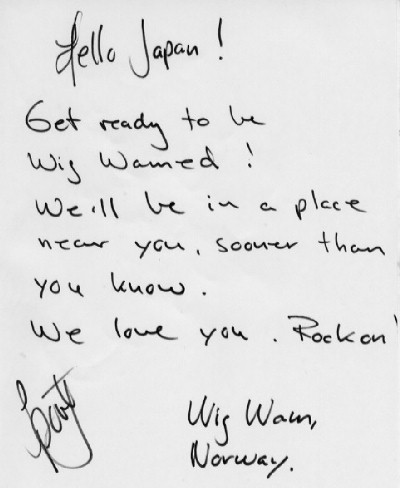 Hello Japan!
Get ready to be
Wig Wamed!
We'll be in a place
near you, sooner than
you know.
We love you. Rock on!
Wig Wam,
Norway.